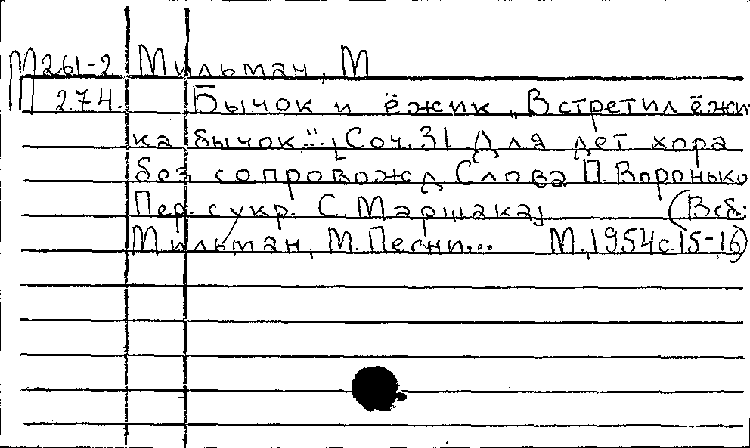 М261-2 Мильман, М
П 274. Бычок и ёжик „Встретил ёжи
ка бычок..." [Соч. 31 Для дет хора
без сопровожд Слова П. Воронько
Пер. с укр. С. Маршака] (В сб:
Мильман, М. Песни... М., 1954 с 15-16)